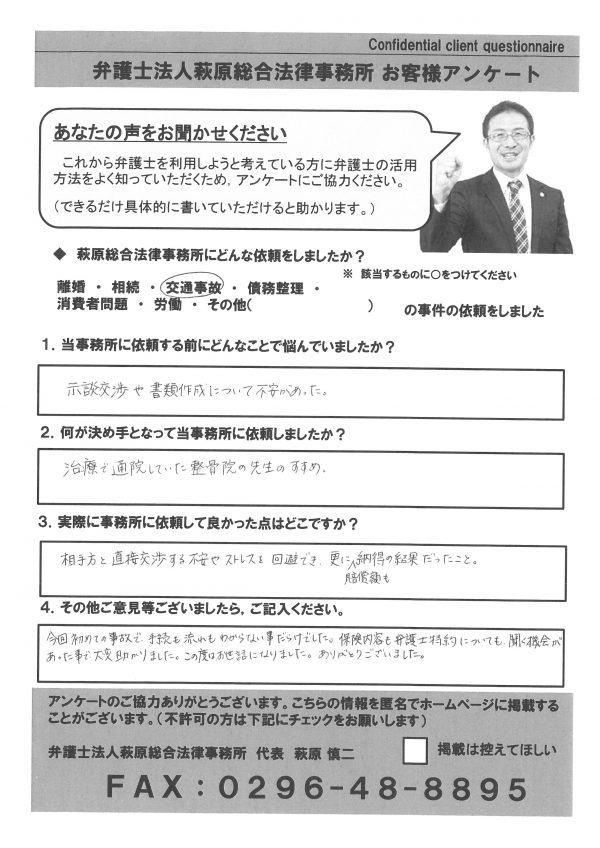 Confidential client questionnaire
弁護士法人萩原総合法律事務所 お客様アンケート
あなたの声をお聞かせください
これから弁護士を利用しようと考えている方に弁護士の活用
方法をよく知っていただくため，アンケートにご協力ください。
（できるだけ具体的に書いていただけると助かります。）
◆ 萩原総合法律事務所にどんな依頼をしましたか？
※ 該当するものに○をつけてください
離婚 ・ 相続 ・ 交通事故 ・ 債務整理 ・
消費者問題 ・ 労働 ・ その他（ ） の事件の依頼をしました
1．当事務所に依頼する前にどんなことで悩んでいましたか？
示談交渉や書類作成について不安があった。
2．何が決め手となって当事務所に依頼しましたか？
治療で通院していた整骨院の先生のすすめ。
3．実際に事務所に依頼して良かった点はどこですか？
相手方と直接交渉する不安やストレスを回避でき、更に納得の結果だったこと。
賠償額も
4．その他ご意見等ございましたら，ご記入ください。
今回初めての事故で、手続も流れもわからない事だらけでした。保険内容も弁護士特約についても、聞く機会が
あった事で大変助かりました。この度はお世話になりました。ありがとうございました。
アンケートのご協力ありがとうございます。こちらの情報を匿名でホームページに掲載する
ことがございます。（不許可の方は下記にチェックをお願いします）
弁護士法人萩原総合法律事務所 代表 萩原 慎二 掲載は控えてほしい
FAX：0296-48-8895